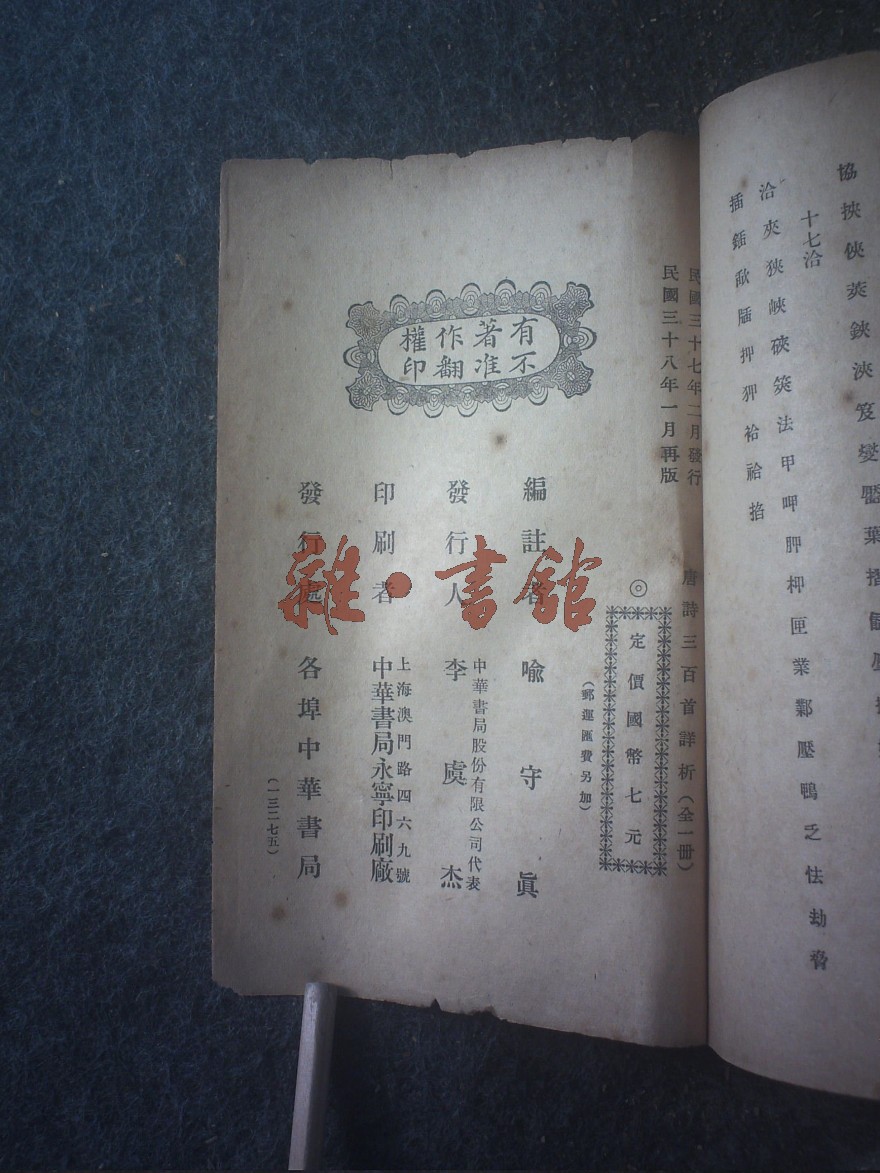 協挾俠莢鋏浹笈燮
十七洽
洽夾狹峽硤筴法甲呷胛柙匣業鄴壓鴨乏怯劫脅
插鍤歃押狎袷袷掐
民國三十七年二月發行
民國三十八年一月再版
唐詩三百首詳析(全一冊)
◎定價國幣七元
(郵運匯費另加)
有著作權
不准翻印
編註者 喩守眞
發行人 李虞杰
中華書局股份有限公司代表
印刷者 中華書局永寧印刷廠
上海澳門路四六九號
發行處 各埠中華書局
(一三二七五)
雜·書館